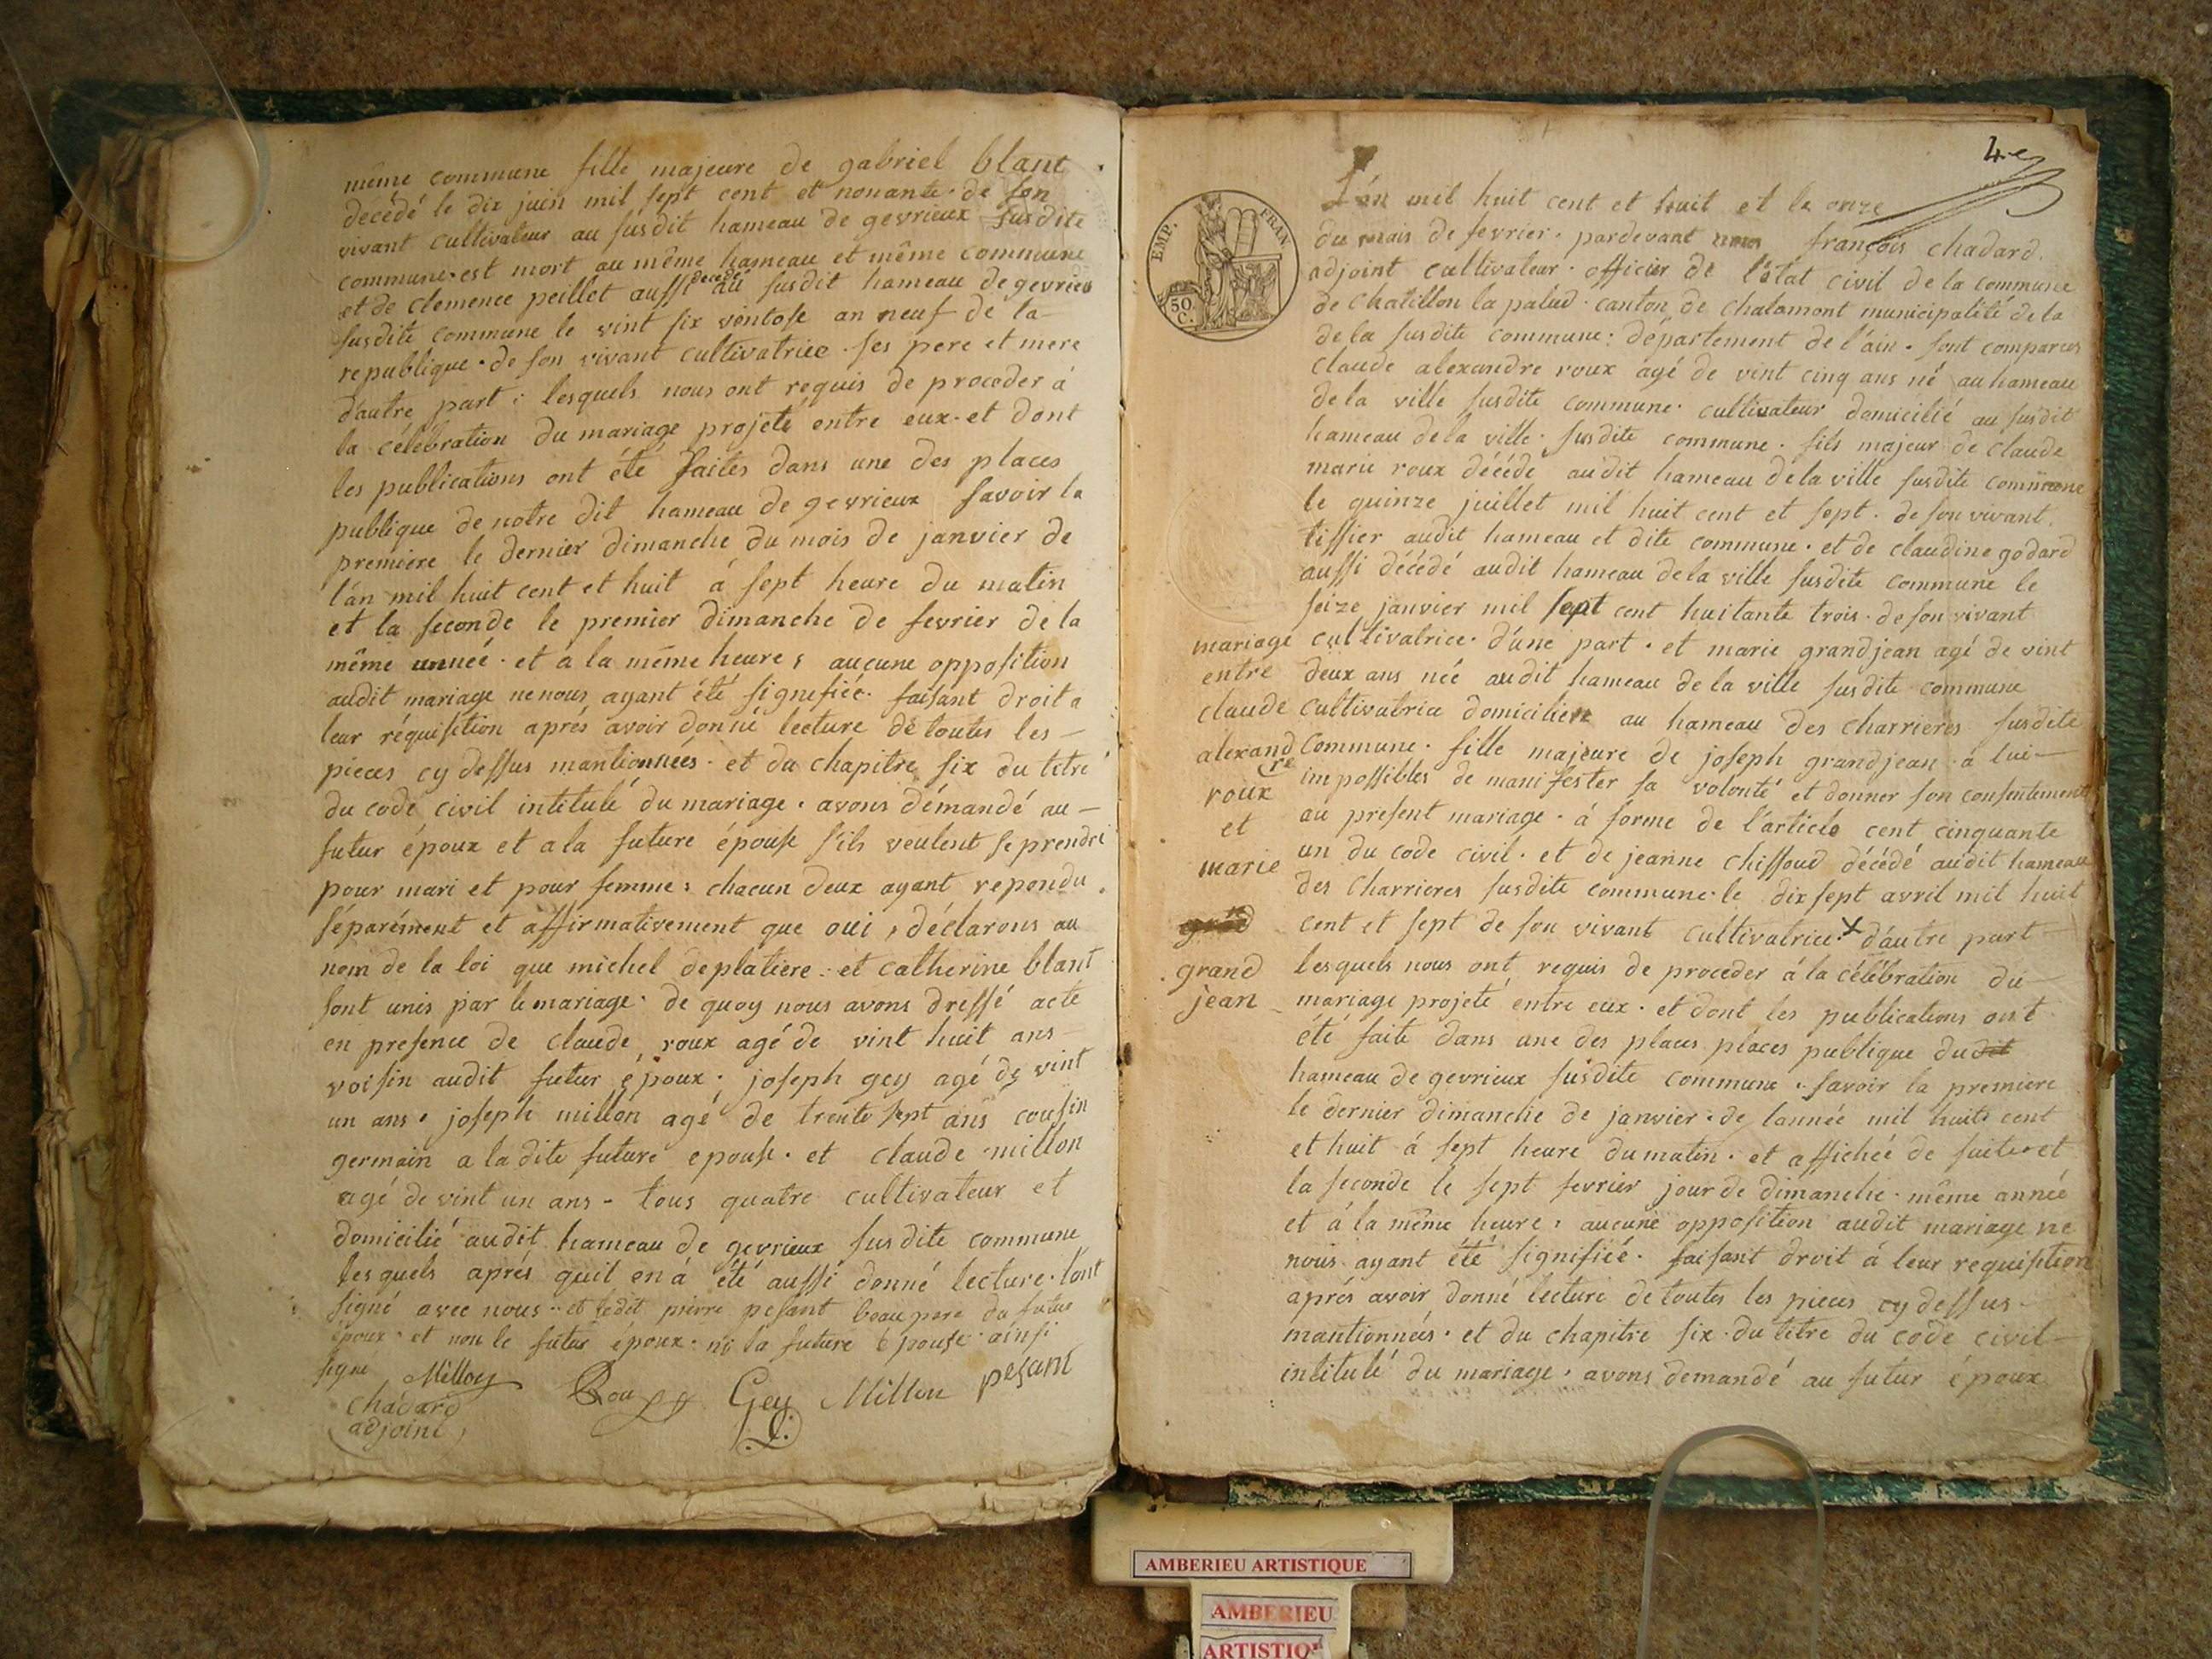 même commune fille majeure de gabriel blant
décédé le dix juin mil sept cent et nonante. de son
vivant cultivateur au susdit hameau de gevrieux susdite
commune. est mort au même hameau et même commune
et de clemence peillet aussi decedé au susdit hameau de gevrieux
susdite commune le vint six ventose an neuf de la
republique. de son vivant cultivatrice. ses pere et mere
d'autre part : lesquels nous ont requis de proceder á
la célébration du mariage projeté entre eux. et dont
les publications ont été faites dans une des places
publique de notre dit hameau de gevrieux savoir la
premiere le dernier dimanche du mois de janvier de
l'án mil huit cent et huit á sept heure du matin
et la seconde le premier dimanche de fevrier de la
même année. et a la même heure, aucune opposition
audit mariage ne nous ayant été signifiée. faisant droit a
leur réquisition aprés avoir donné lecture de toutes les
pieces cy dessus mantionnées. et du chapitre six du titre
du code civil intitulé du mariage. avons démandé au
futur époux et a la future épouse s'ils veulent se prendre
pour mari et pour femme, chacun deux ayant repondu
séparément et affirmativement que oui, déclarons au
nom de la loi que michel deplatiere. et catherine blant
sont unis par le mariage. de quoy nous avons dressé acte
en presence de claude roux agé de vint huit ans
voisin audit futur époux. joseph gey agé de vint
un ans. joseph millon agé de trente sept ans cousin
germain a la dite future epouse. et claude millon
agé de vint un ans - tous quatre cultivateur et
domicilié audit hameau de gevrieux susdite commune
lesquels aprés quil en á été aussi donné lecture. l'ont
signé avec nous. et ledit pierre pesant beau pere du futur
époux. et non le futur époux. ni la future épouse. ainsi
signe Millon Roux Gey Millon pesant
chadard
adjoint
4e
EMP. FRAN
50
C.
L'án mil huit cent et huit et le onze
du mois de fevrier. pardevant nous françois chadard.
adjoint cultivateur. officier de l'état civil de la commune
de chatillon la palud. canton de chalamont municipalité de la
de la susdite commune : département de l'áin. sont comparus
claude alexandre roux agé de vint cinq ans né au hameau
de la ville susdite commune. cultivateur domicilié au susdit
hameau de la ville. susdite commune. fils majeur de claude
marie roux décédé audit hameau de la ville susdite commune
le quinze juillet mil huit cent et sept. de son vivant.
tissier audit hameau et dite commune. et de claudine godard
aussi décédé audit hameau de la ville susdite commune le
seize janvier mil sept cent huitante trois. de son vivant
cultivatrice. d'une part. et marie grandjean agé de vint
deux ans née audit hameau de la ville susdite commune
cultivatrice domiciliere au hameau des charrieres susdite
commune. fille majeure de joseph grandjean. á lui
impossibles de manifester sa volonté et donner son consentement
au present mariage. á forme de l'article cent cinquante
un du code civil. et de jeanne chiffoud décédé audit hameau
des charrieres susdite commune. le dix sept avril mil huit
cent et sept de son vivant cultivatrice. x d'autre part
lesquels nous ont requis de proceder á la célébration du
mariage projeté entre eux. et dont les publications ont
été faite dans une des places places publique dudit
hameau de gevrieux susdite commune. savoir la premiere
le dernier dimanche de janvier. de lannée mil huit cent
et huit á sept heure du matin. et affichée de suite. et
la seconde le sept fevrier jour de dimanche. même année
et á la même heure. aucune opposition audit mariage ne
nous ayant été signifiée. faisant droit á leur requisition
aprés avoir donné lecture de toutes les pieces cy dessus
mantionnées. et du chapitre six. du titre du code civil
intitulé du mariage. avons demandé au futur époux
mariage
entre
claude
alexand
re
roux
et
marie
grand
jean
AMBERIEU ARTISTIQUE
AMBERIEU
ARTISTIQU